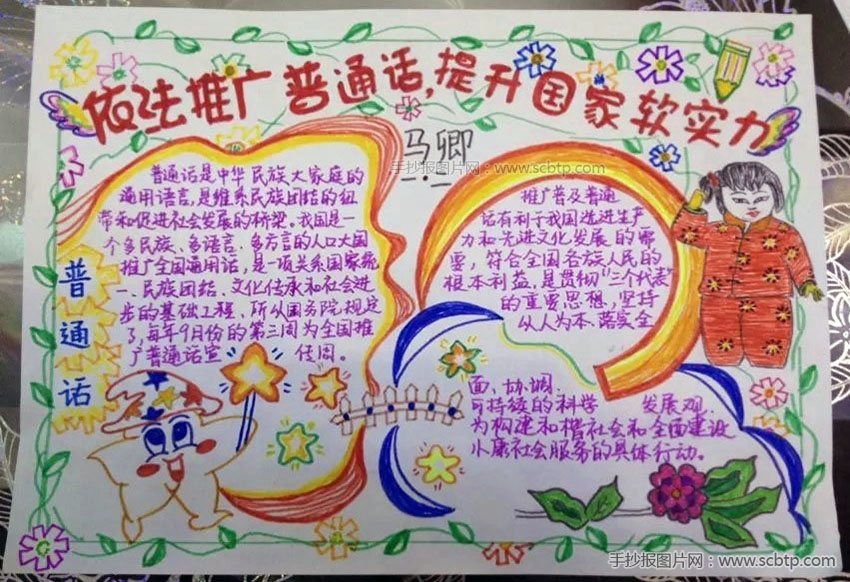 依法推广普通话,提升国家软实力
马卿
手抄报图片网：www.scbtp.com
普通话
普通话是中华民族大家庭的
通用语言,是维系民族团结的纽
带和促进社会发展的桥梁。我国是一
个多民族、多语言、多方言的人口大国
推广全国通用话，是一项关系国家统
一、民族团结、文化传承和社会进
步的基础工程、所以国务院规定
了,每年9月份的第三周为全国推
广普通话宣 传周。
推广普及普通
话有利于我国先进生产
力和先进文化发展的需
要，符合全国各族人民的
根本利益,是贯彻"三个代表"
的重要思想，坚持
以人为本.落实全
面、协调、
可持续的科学 发展观.
为构建和楷社会和全面建设
小康社会服务的具体行动。
手抄报图片网：www.scbtp.com